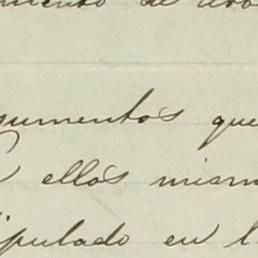 mento de
gumentos que
ellos mism
ipulado en l